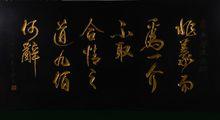 非義而
爲一介
不取
合情之
道九佰
何辭